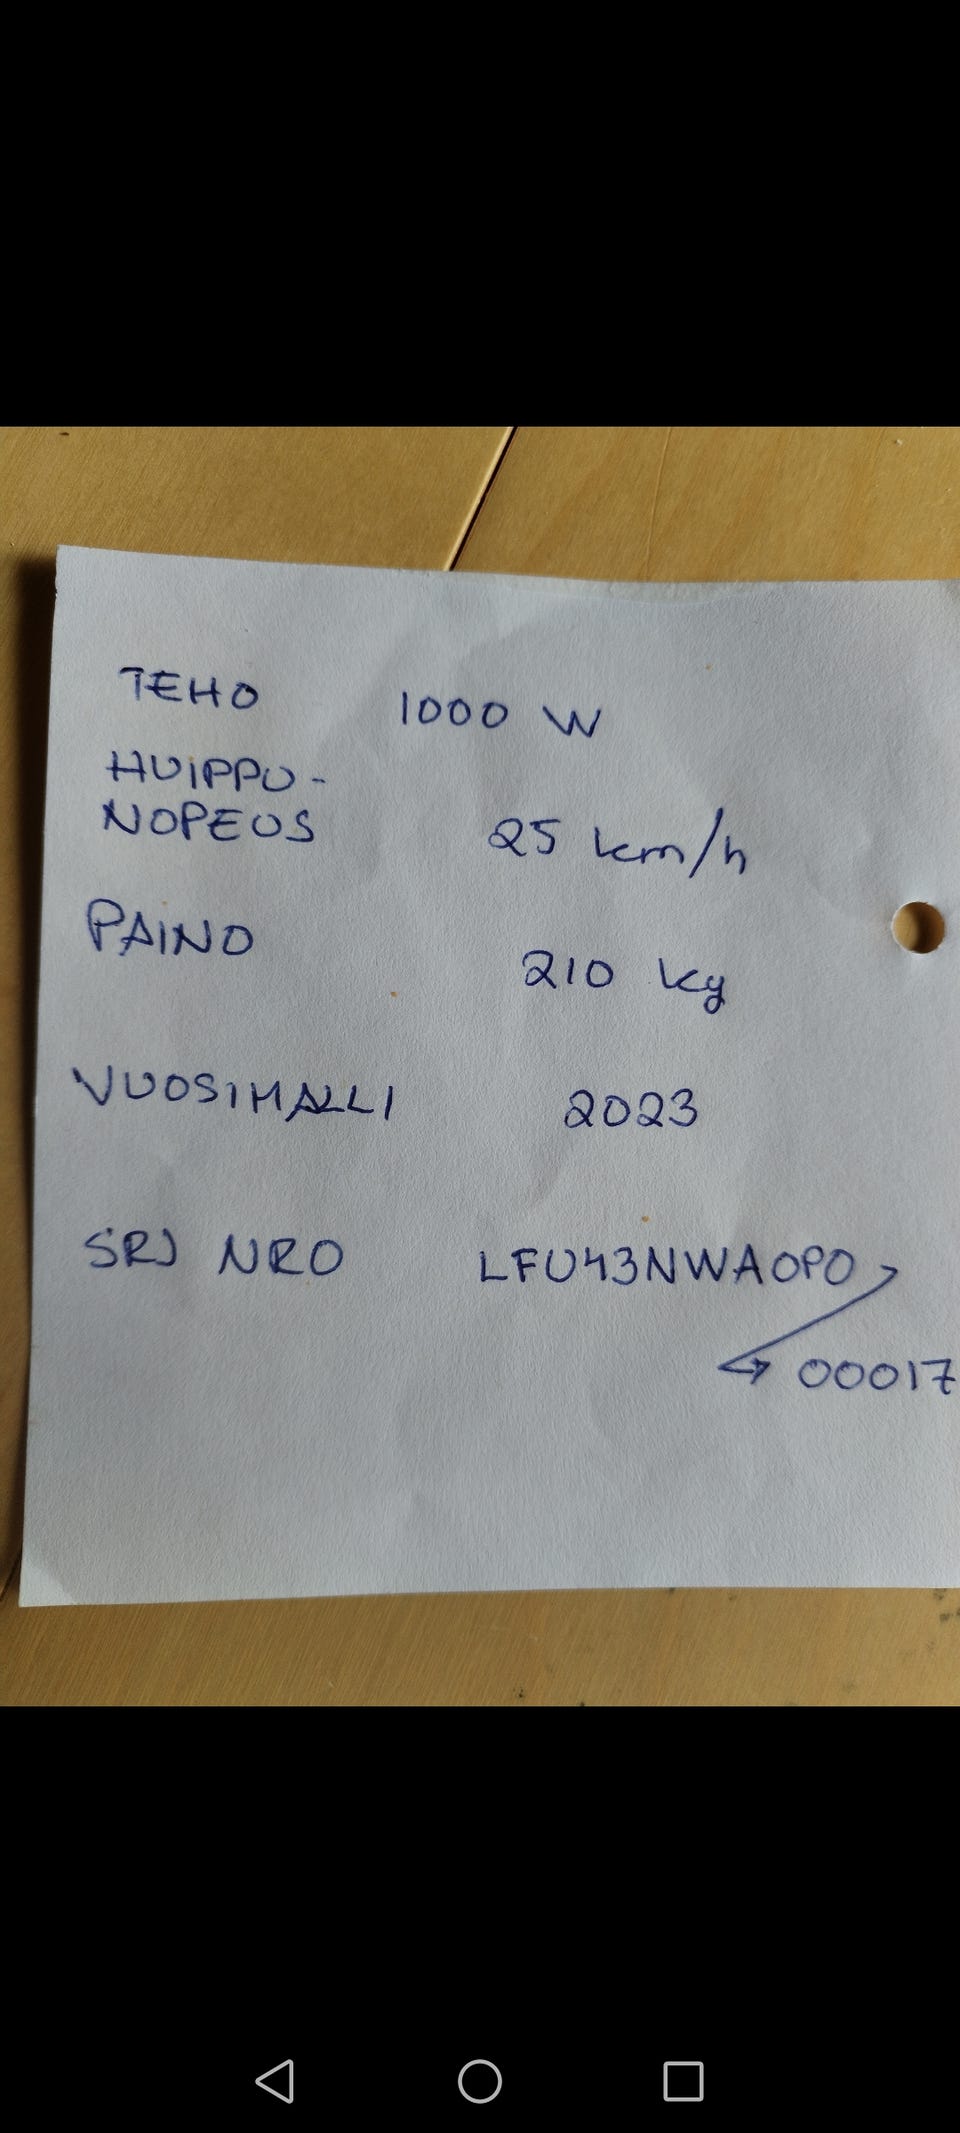 TEHO 1000 W
HUIPPU-
NOPEUS 25 km/h
PAINO 210 kg
VUOSIMALLI 2023
SRJ NRO LFU43NWA0P0
00017